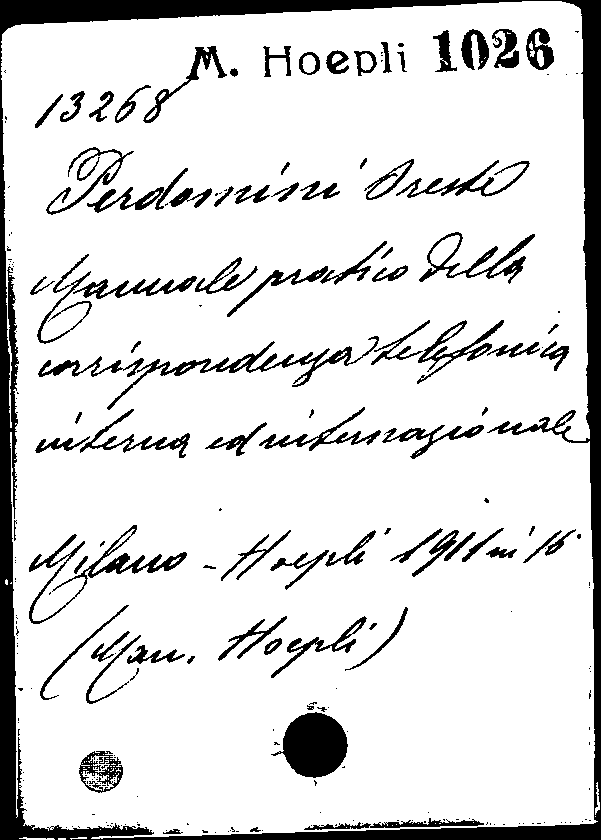 M. Hoepli 1026
13268
Perdomini Oreste
Manuale pratico della
corrispondenza telefonica
interna ed internazionale
Milano - Hoepli 1911 in 16°
(Man. Hoepli)